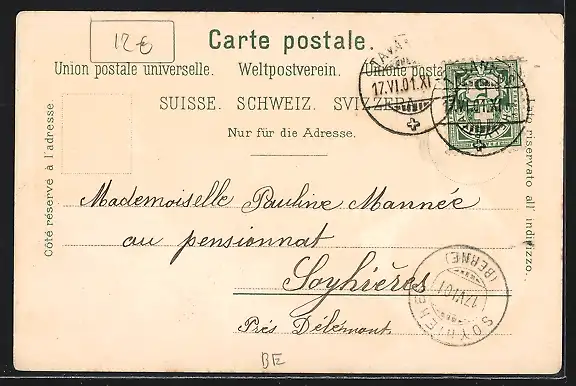 12€
Carte postale.
Union postale universelle. Weltpostverein. Unione posta
SUISSE. SCHWEIZ. SVIZZERA.
Nur für die Adresse.
TAVA
17.VI.01.XI
17.VI.01.XI
5
Côté réservé à l'adresse
Lato riservato all' indirizzo.
Mademoiselle Pauline Mannée
au pensionnat
Soyhières
Près Délémont
SOYHIERES
17.VI.01
(BERNE)
BE